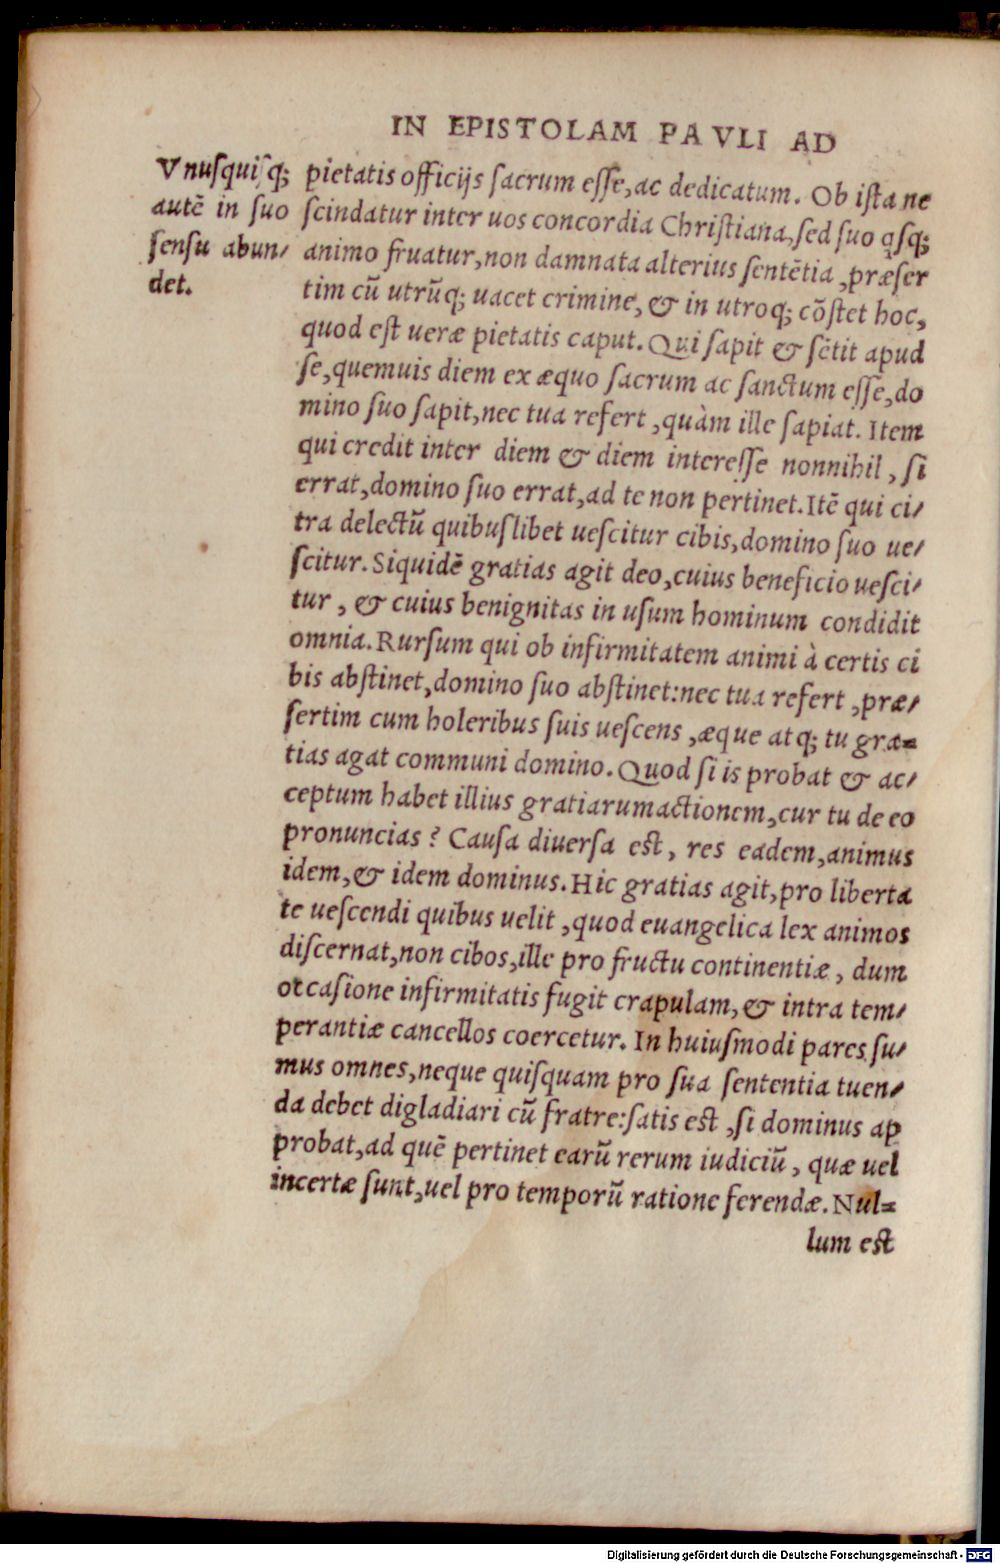 IN EPISTOLAM PAVLI AD
Vnuſquiſq;
autē in ſuo
ſenſu abun⸗
det.
pietatis officijs ſacrum eſſe, ac dedicatum. Ob iſta ne
ſcindatur inter uos concordia Chriſtiana, ſed ſuo qſq;
animo fruatur, non damnata alterius ſentētia, præſer
tim cū utrūq; uacet crimine, & in utroq; cōſtet hoc,
quod eſt ueræ pietatis caput. Qui ſapit & ſētit apud
ſe, quemuis diem ex æquo ſacrum ac ſanctum eſſe, do
mino ſuo ſapit, nec tua refert, quàm ille ſapiat. Item
qui credit inter diem & diem intereſſe nonnihil, ſi
errat, domino ſuo errat, ad te non pertinet. Itē qui ci⸗
tra delectū quibuſlibet ueſcitur cibis, domino ſuo ue⸗
ſcitur. Siquidē gratias agit deo, cuius beneficio ueſci⸗
tur, & cuius benignitas in uſum hominum condidit
omnia. Rurſum qui ob infirmitatem animi à certis ci
bis abſtinet, domino ſuo abſtinet: nec tua refert, præ⸗
ſertim cum holeribus ſuis ueſcens, æque atq; tu gra⸗
tias agat communi domino. Quod ſi is probat & ac⸗
ceptum habet illius gratiarumactionem, cur tu de eo
pronuncias? Cauſa diuerſa eſt, res eadem, animus
idem, & idem dominus. Hic gratias agit, pro liberta
te ueſcendi quibus uelit, quod euangelica lex animos
diſcernat, non cibos, ille pro fructu continentiæ, dum
occaſione infirmitatis fugit crapulam, & intra tem⸗
perantiæ cancellos coercetur. In huiuſmodi pares ſu⸗
mus omnes, neque quiſquam pro ſua ſententia tuen⸗
da debet digladiari cū fratre: ſatis eſt, ſi dominus ap
probat, ad quē pertinet earū rerum iudiciū, quæ uel
incertæ ſunt, uel pro temporū ratione ferendæ. Nul⸗
lum eſt
Digitalisierung gefördert durch die Deutsche Forschungsgemeinschaft - DFG